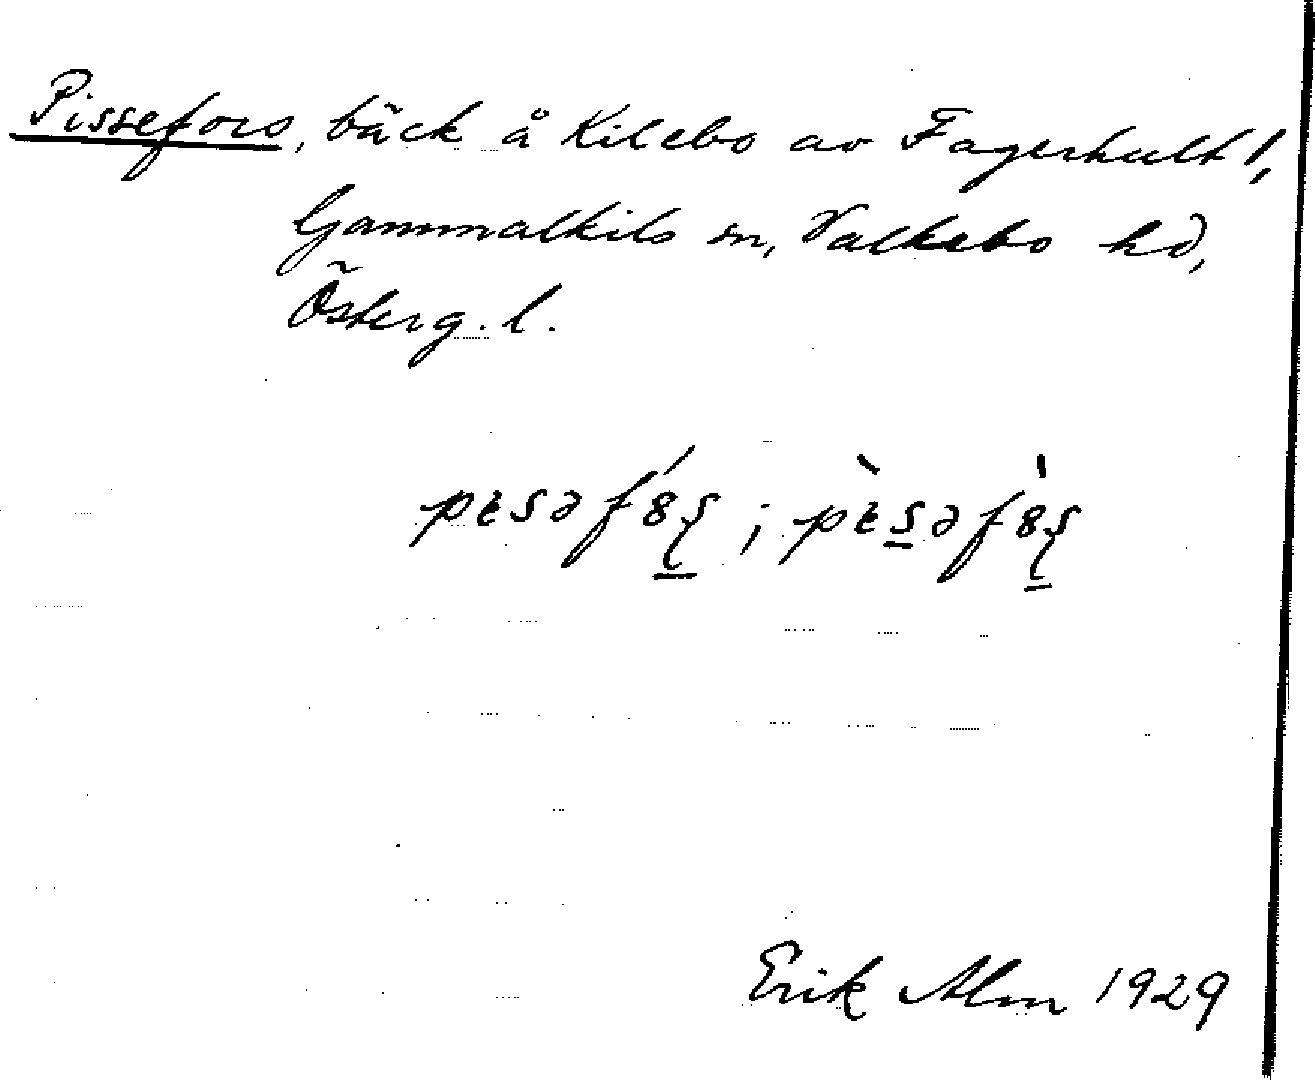 Pissefors, bäck å Kilebo av Fagerhult!,
Gammalkils sn, Valkebo hd,
Österg. l.
Erik Alm 1929